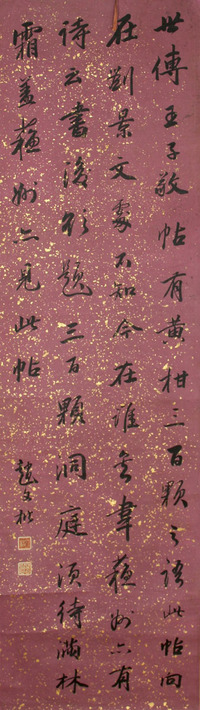 世傳王子敬帖有黃柑三百顆之語此帖向
在劉景文處不知今在誰家韋蘇州亦有
詩云書後欲題三百顆洞庭須待滿林
霜蓋蘇州亦見此帖
趙文楷